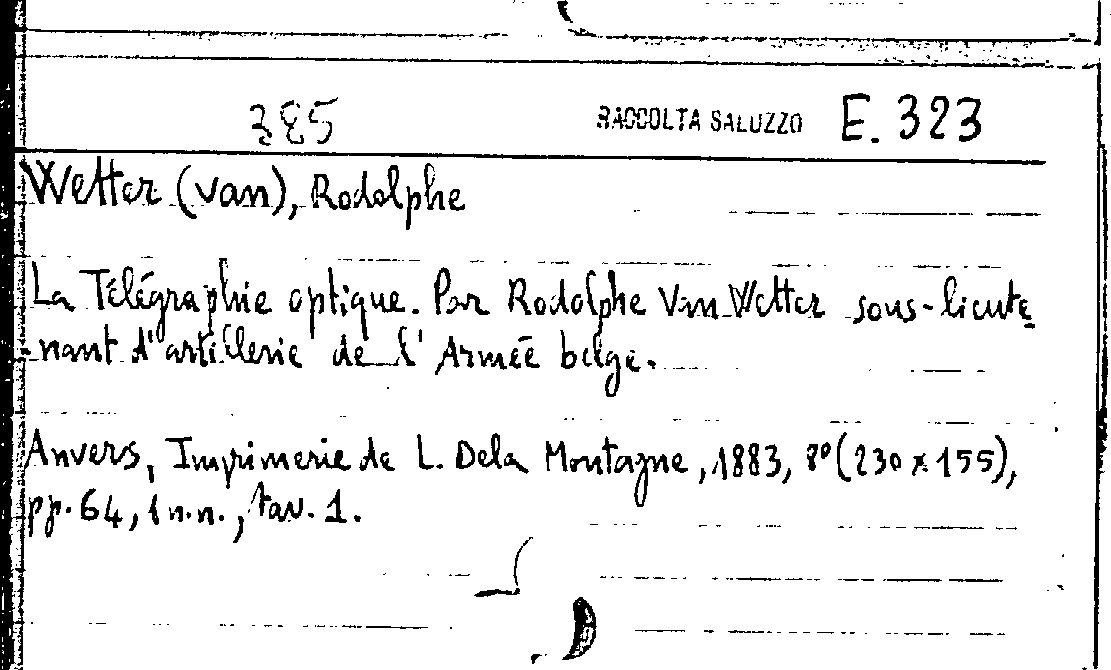 385 RACCOLTA SALUZZO E. 323
Wetter (van), Rodolphe
La Télégraphie optique. Par Rodolphe Van Wetter sous-lieute
-nant d'artillerie de l'Armée belge.
Anvers, Imprimerie de L. Dela Montagne, 1883, 8º (230 x 155),
pp. 64, 1 n.n., tav. 1.